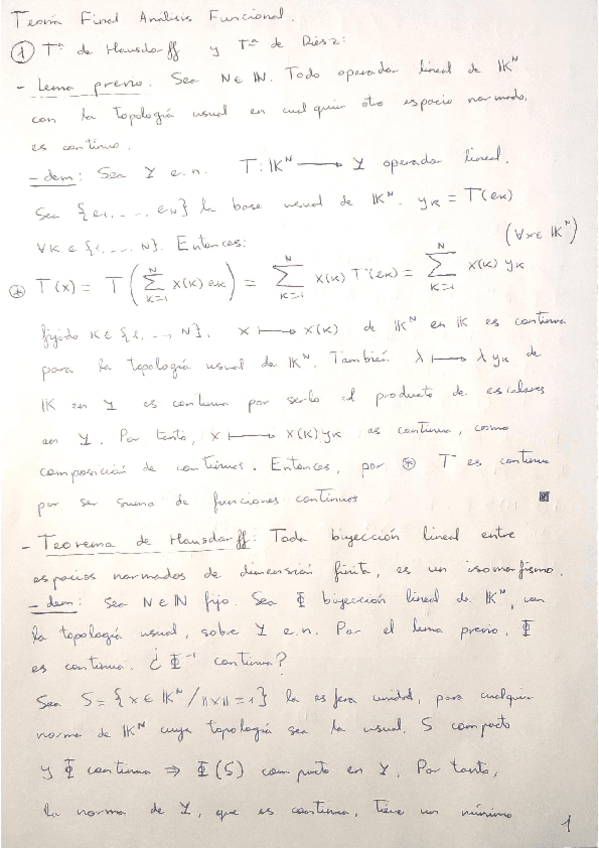 Teoría Final Análisis Funcional.
① Tª de Hausdorff y Tª de Riesz:
- Lema previo: Sea N∈ℕ. Todo operador lineal de 𝕂ᴺ
con la topología usual en cualquier otro espacio normado,
es continuo.
- dem: Sea Y e.n. T: 𝕂ᴺ ⟶ Y operador lineal.
Sea {e₁, ..., e_N} la base usual de 𝕂ᴺ. y_K = T(e_K)
∀K ∈ {1, ..., N}. Entonces: (∀x∈ 𝕂ᴺ)
⊛ T(x) = T(∑_{K=1}^{N} x(K) e_K) = ∑_{K=1}^{N} x(K) T(e_K) = ∑_{K=1}^{N} x(K) y_K
fijado K∈{1, .., N}, x ⟼ x(K) de 𝕂ᴺ en 𝕂 es continua
para la topología usual de 𝕂ᴺ. También λ ⟼ λ y_K de
𝕂 en Y es continua por serlo el producto de escalares
en Y. Por tanto, x ⟼ x(K) y_K es continua, como
composición de continuas. Entonces, por ⊛ T es continua
por ser suma de funciones continuas
- Teorema de Hausdorff: Toda biyección lineal entre
espacios normados de dimensión finita, es un isomorfismo.
- dem: Sea N∈ℕ fijo. Sea Φ biyección lineal de 𝕂ᴺ, con
la topología usual, sobre Y e.n. Por el lema previo, Φ
es continua. ¿Φ⁻¹ continua?
Sea S = {x ∈ 𝕂ᴺ / ||x|| = 1} la esfera unidad, para cualquier
norma de 𝕂ᴺ cuya topología sea la usual. S compacto
y Φ continua ⇒ Φ(S) compacto en Y. Por tanto,
la norma de Y, que es continua, tiene un mínimo
1